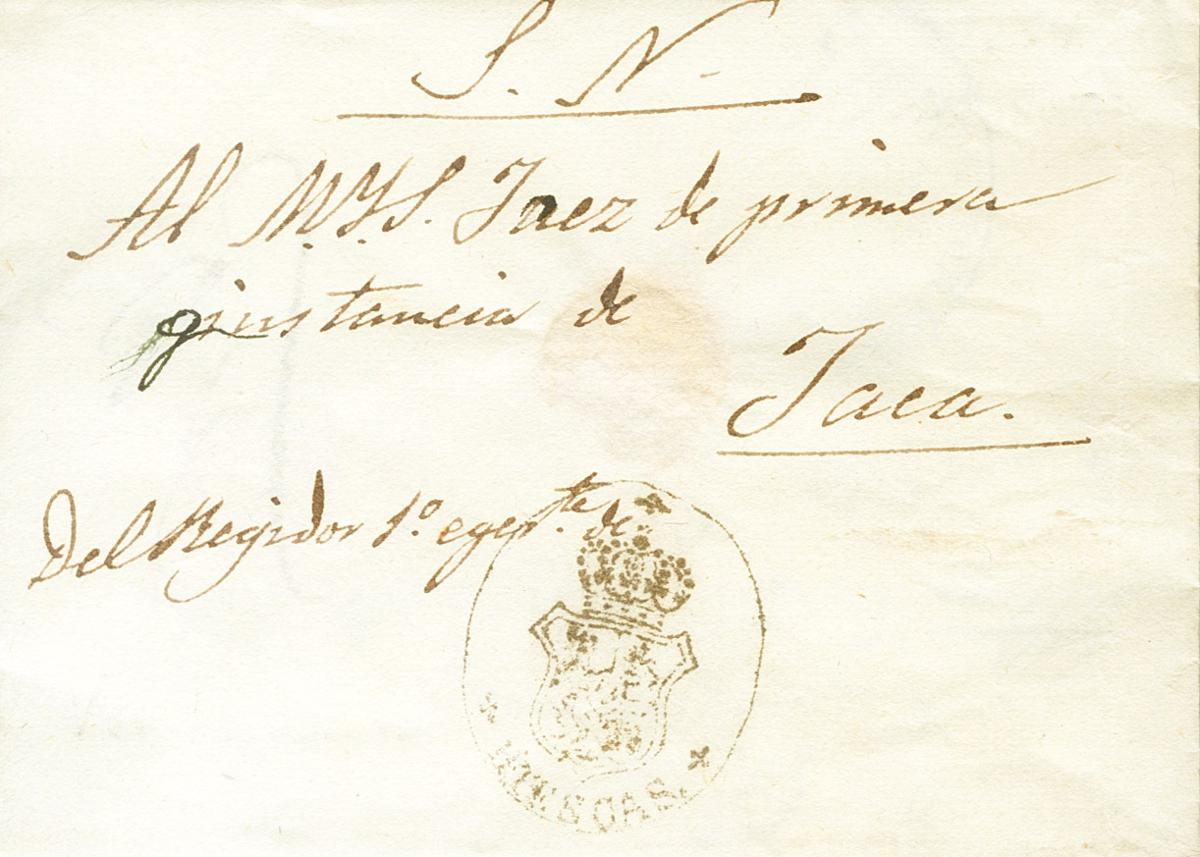 S. N.
Al M.Y.S. Juez de primera
instancia de
Jaca.
Del Regidor 1º egerte. de